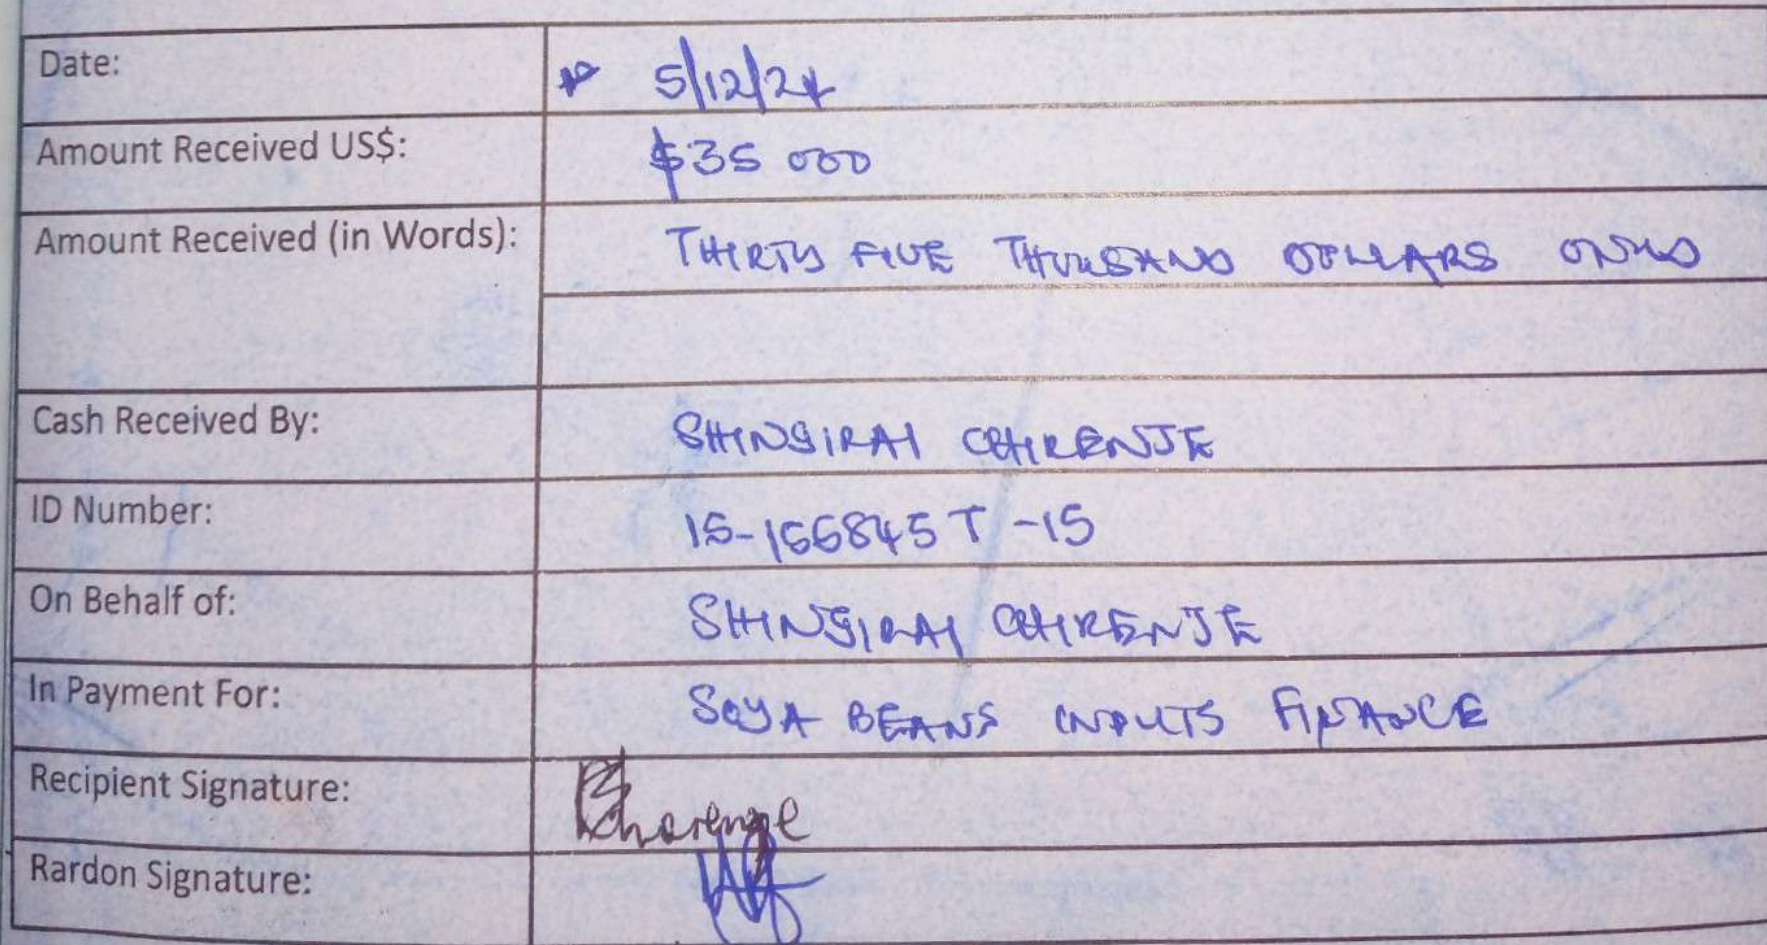 Date: 5/12/24
Amount Received US$: $35 000
Amount Received (in Words): THIRTY FIVE THOUSAND DOLLARS ONLY
Cash Received By: SHINGIRAI CHIRENJE
ID Number: 15-166845 T -15
On Behalf of: SHINGIRAI CHIRENJE
In Payment For: SOYA BEANS INPUTS FINANCE
Recipient Signature:
Rardon Signature: